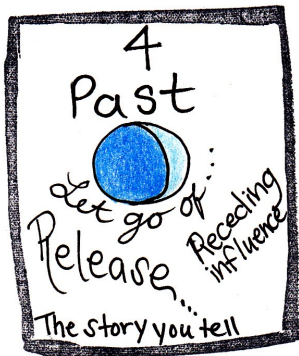 4
Past
Let go of...
Release...
Receding
influence
The story you tell